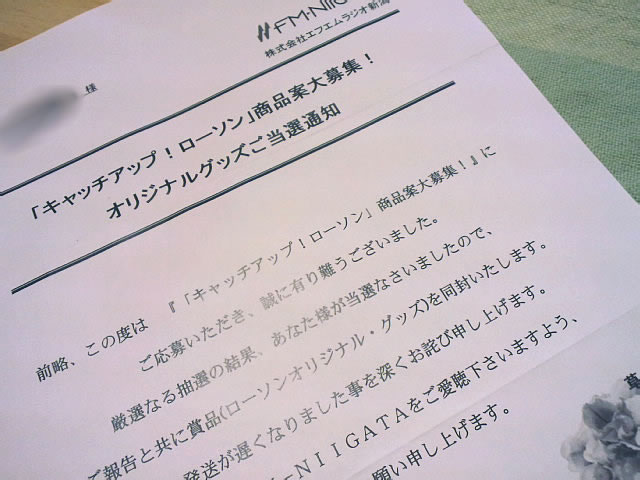 FM-NIIG
株式会社エフエムラジオ新潟
様
「キャッチアップ！ローソン」商品案大募集！
オリジナルグッズご当選通知
前略、この度は 『「キャッチアップ！ローソン」商品案大募集！』に
ご応募いただき、誠に有り難うございました。
厳選なる抽選の結果、あなた様が当選なさいましたので、
ご報告と共に賞品(ローソンオリジナル・グッズ)を同封いたします。
発送が遅くなりました事を深くお詫び申し上げます。
-NIIGATAをご愛聴下さいますよう、
願い申し上げます。